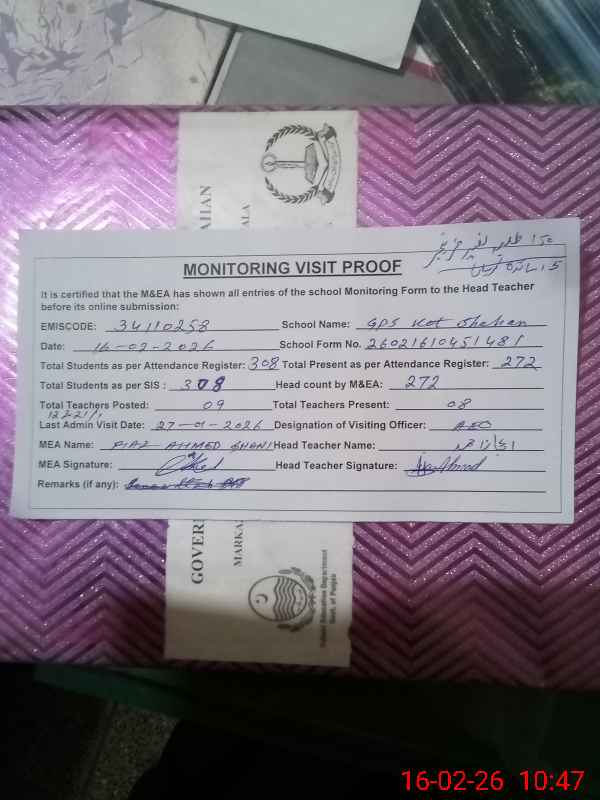 150 طلبہ
MONITORING VISIT PROOF
It is certified that the M&EA has shown all entries of the school Monitoring Form to the Head Teacher
before its online submission:
EMISCODE: 34110258 School Name: GPS Kot Shahan
Date: 16-02-2026 School Form No. 26021610451481
Total Students as per Attendance Register: 308 Total Present as per Attendance Register: 272
Total Students as per SIS : 308 Head count by M&EA: 272
Total Teachers Posted: 09 Total Teachers Present: 08
Last Admin Visit Date: 27-01-2026 Designation of Visiting Officer: AEO
MEA Name: RIAZ AHMED GHANI Head Teacher Name:
MEA Signature: Head Teacher Signature:
Remarks (if any):
AHAN
ALA
GOVER
MARKA
School Education Department
Govt. of Punjab
16-02-26 10:47